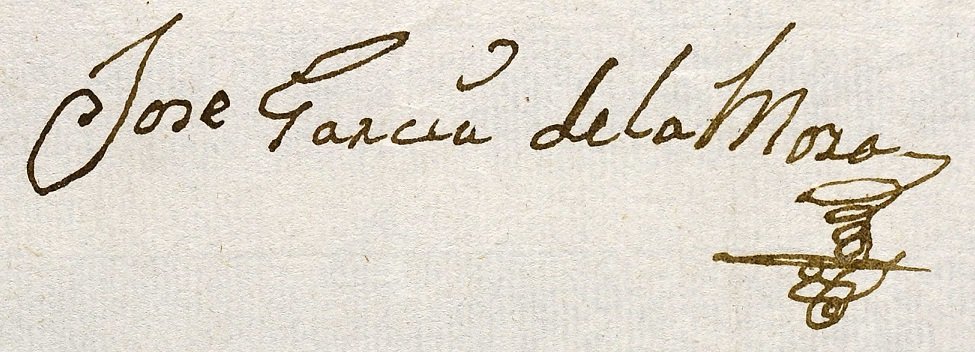 Jose Garcia de la Mora